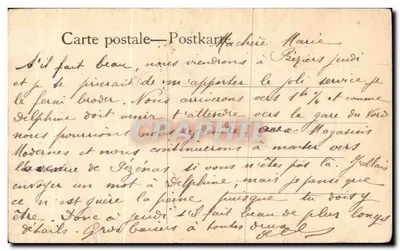 Carte postale—Postkarte
Ma chère Marie
S'il fait beau, nous viendrons à Béziers jeudi
et je te prierais de m'apporter le joli service je
le ferai broder. Nous arriverons vers 1h ½ et comme
Delphine doit venir t'attendre vers la gare du Nord
nous pourrions Magasins
Modernes et nous continuerons à monter vers
de Pézénas si vous n'êtes pas là. J'allais
envoyer un mot à Delphine, mais je pense que
ce n'est guère la peine puisque tu dois y
être. Donc à jeudi s'il fait beau de plus longs
détails. Gros baisers à toutes deux